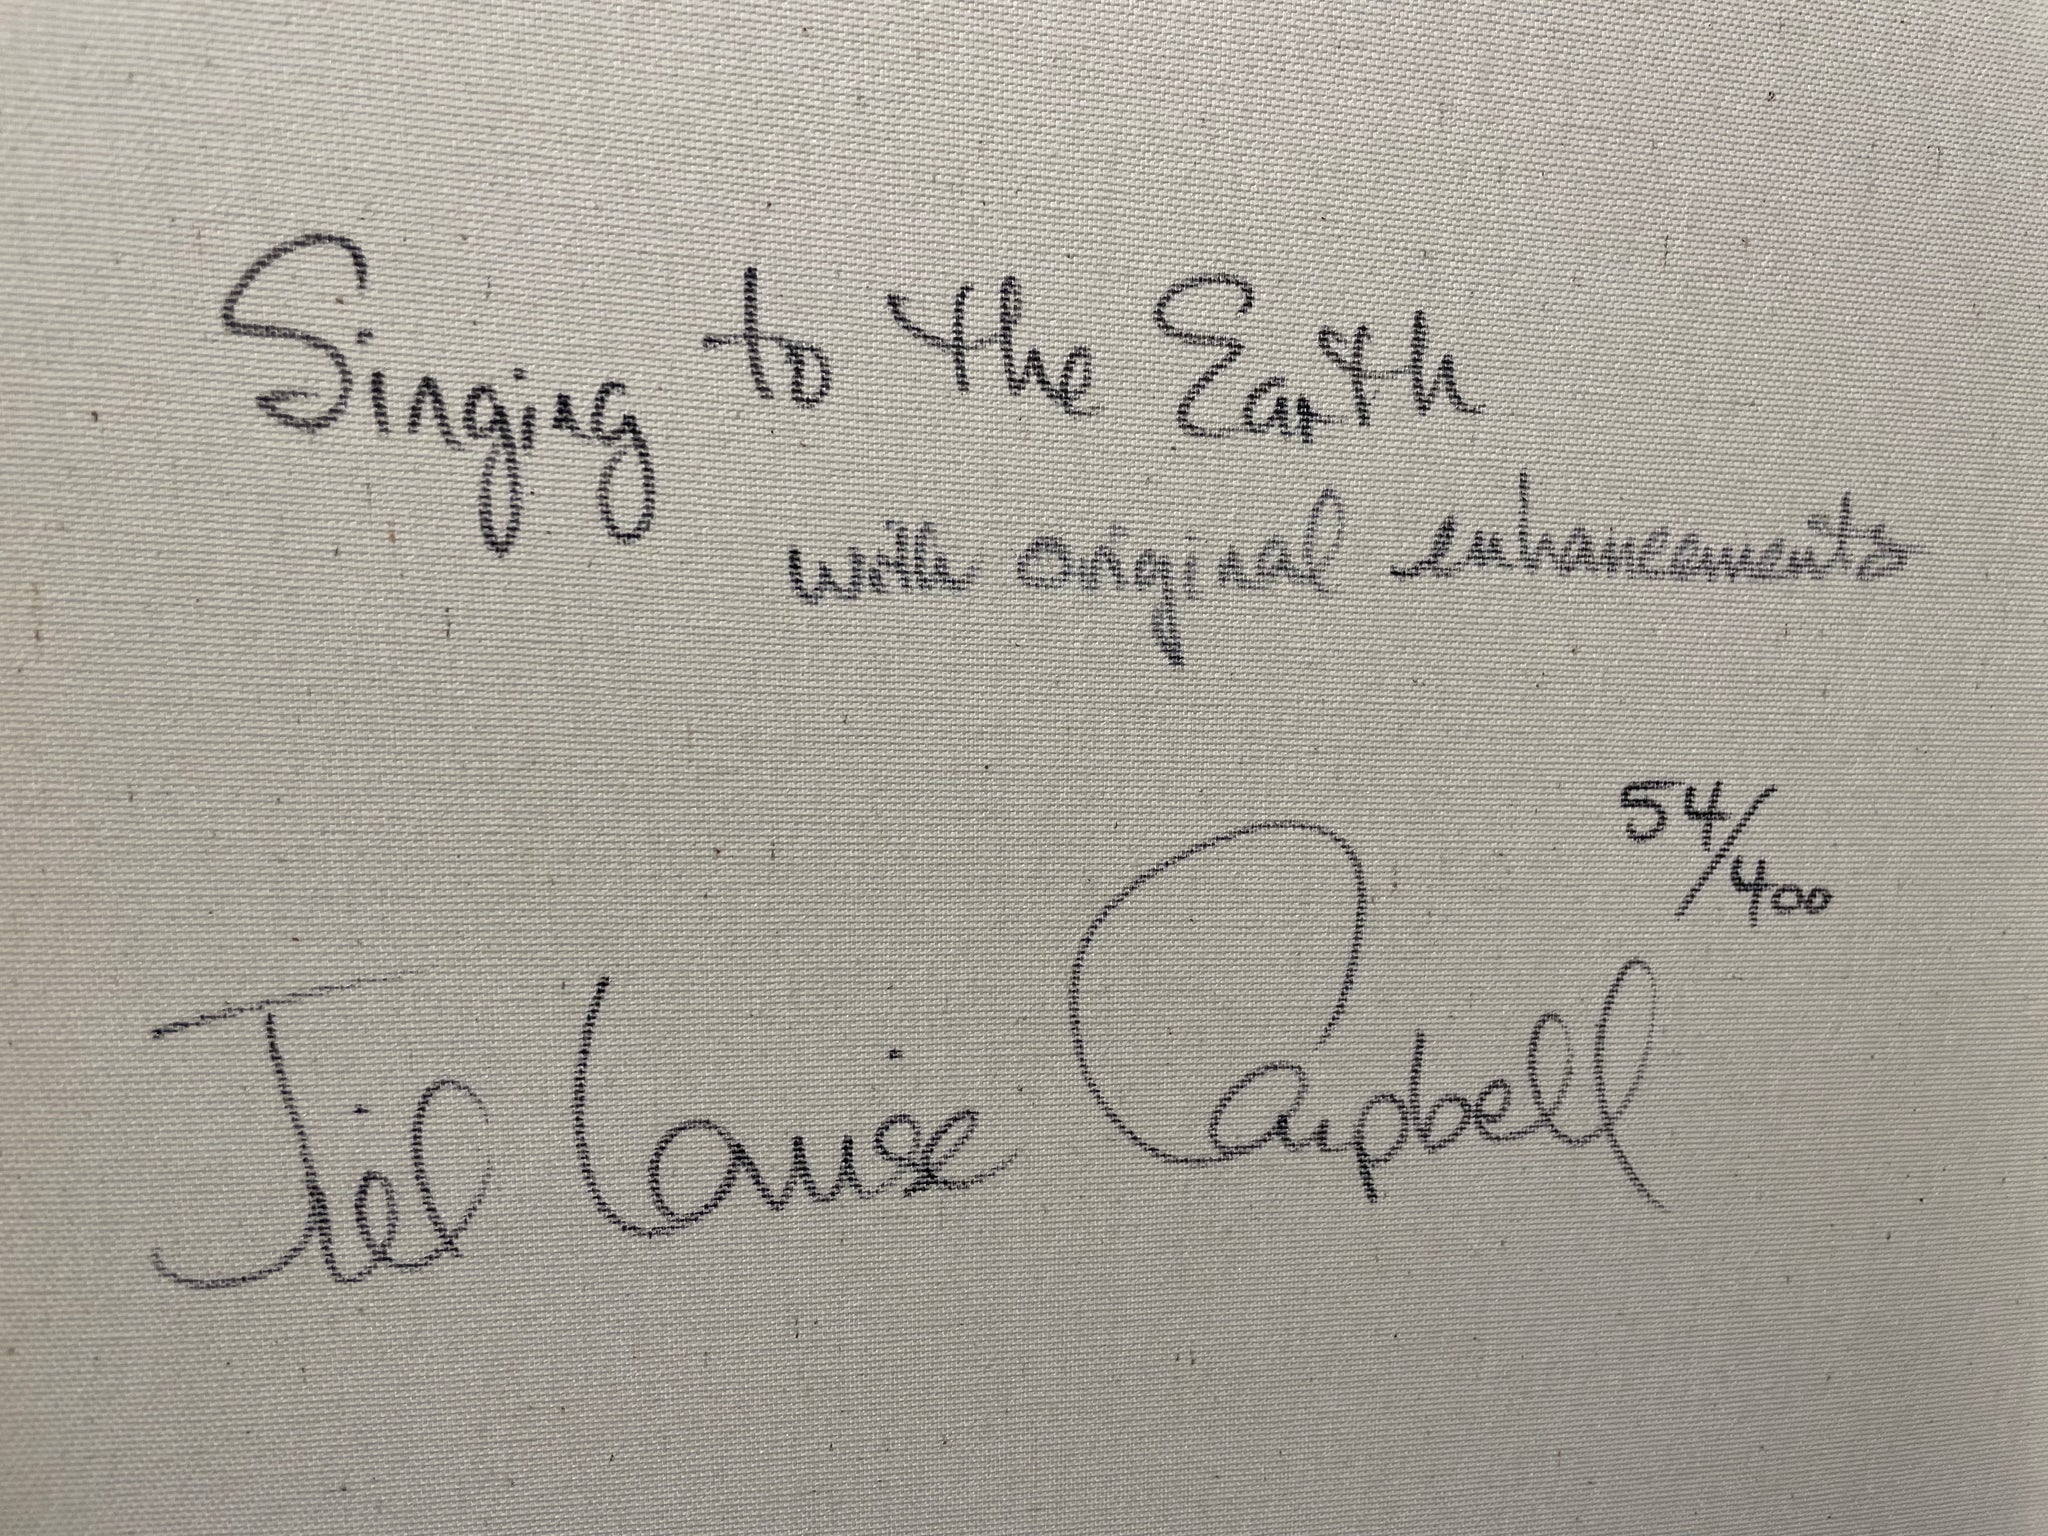 Singing to the Earth
with original enhancements
54/400
Jil Louise Campbell